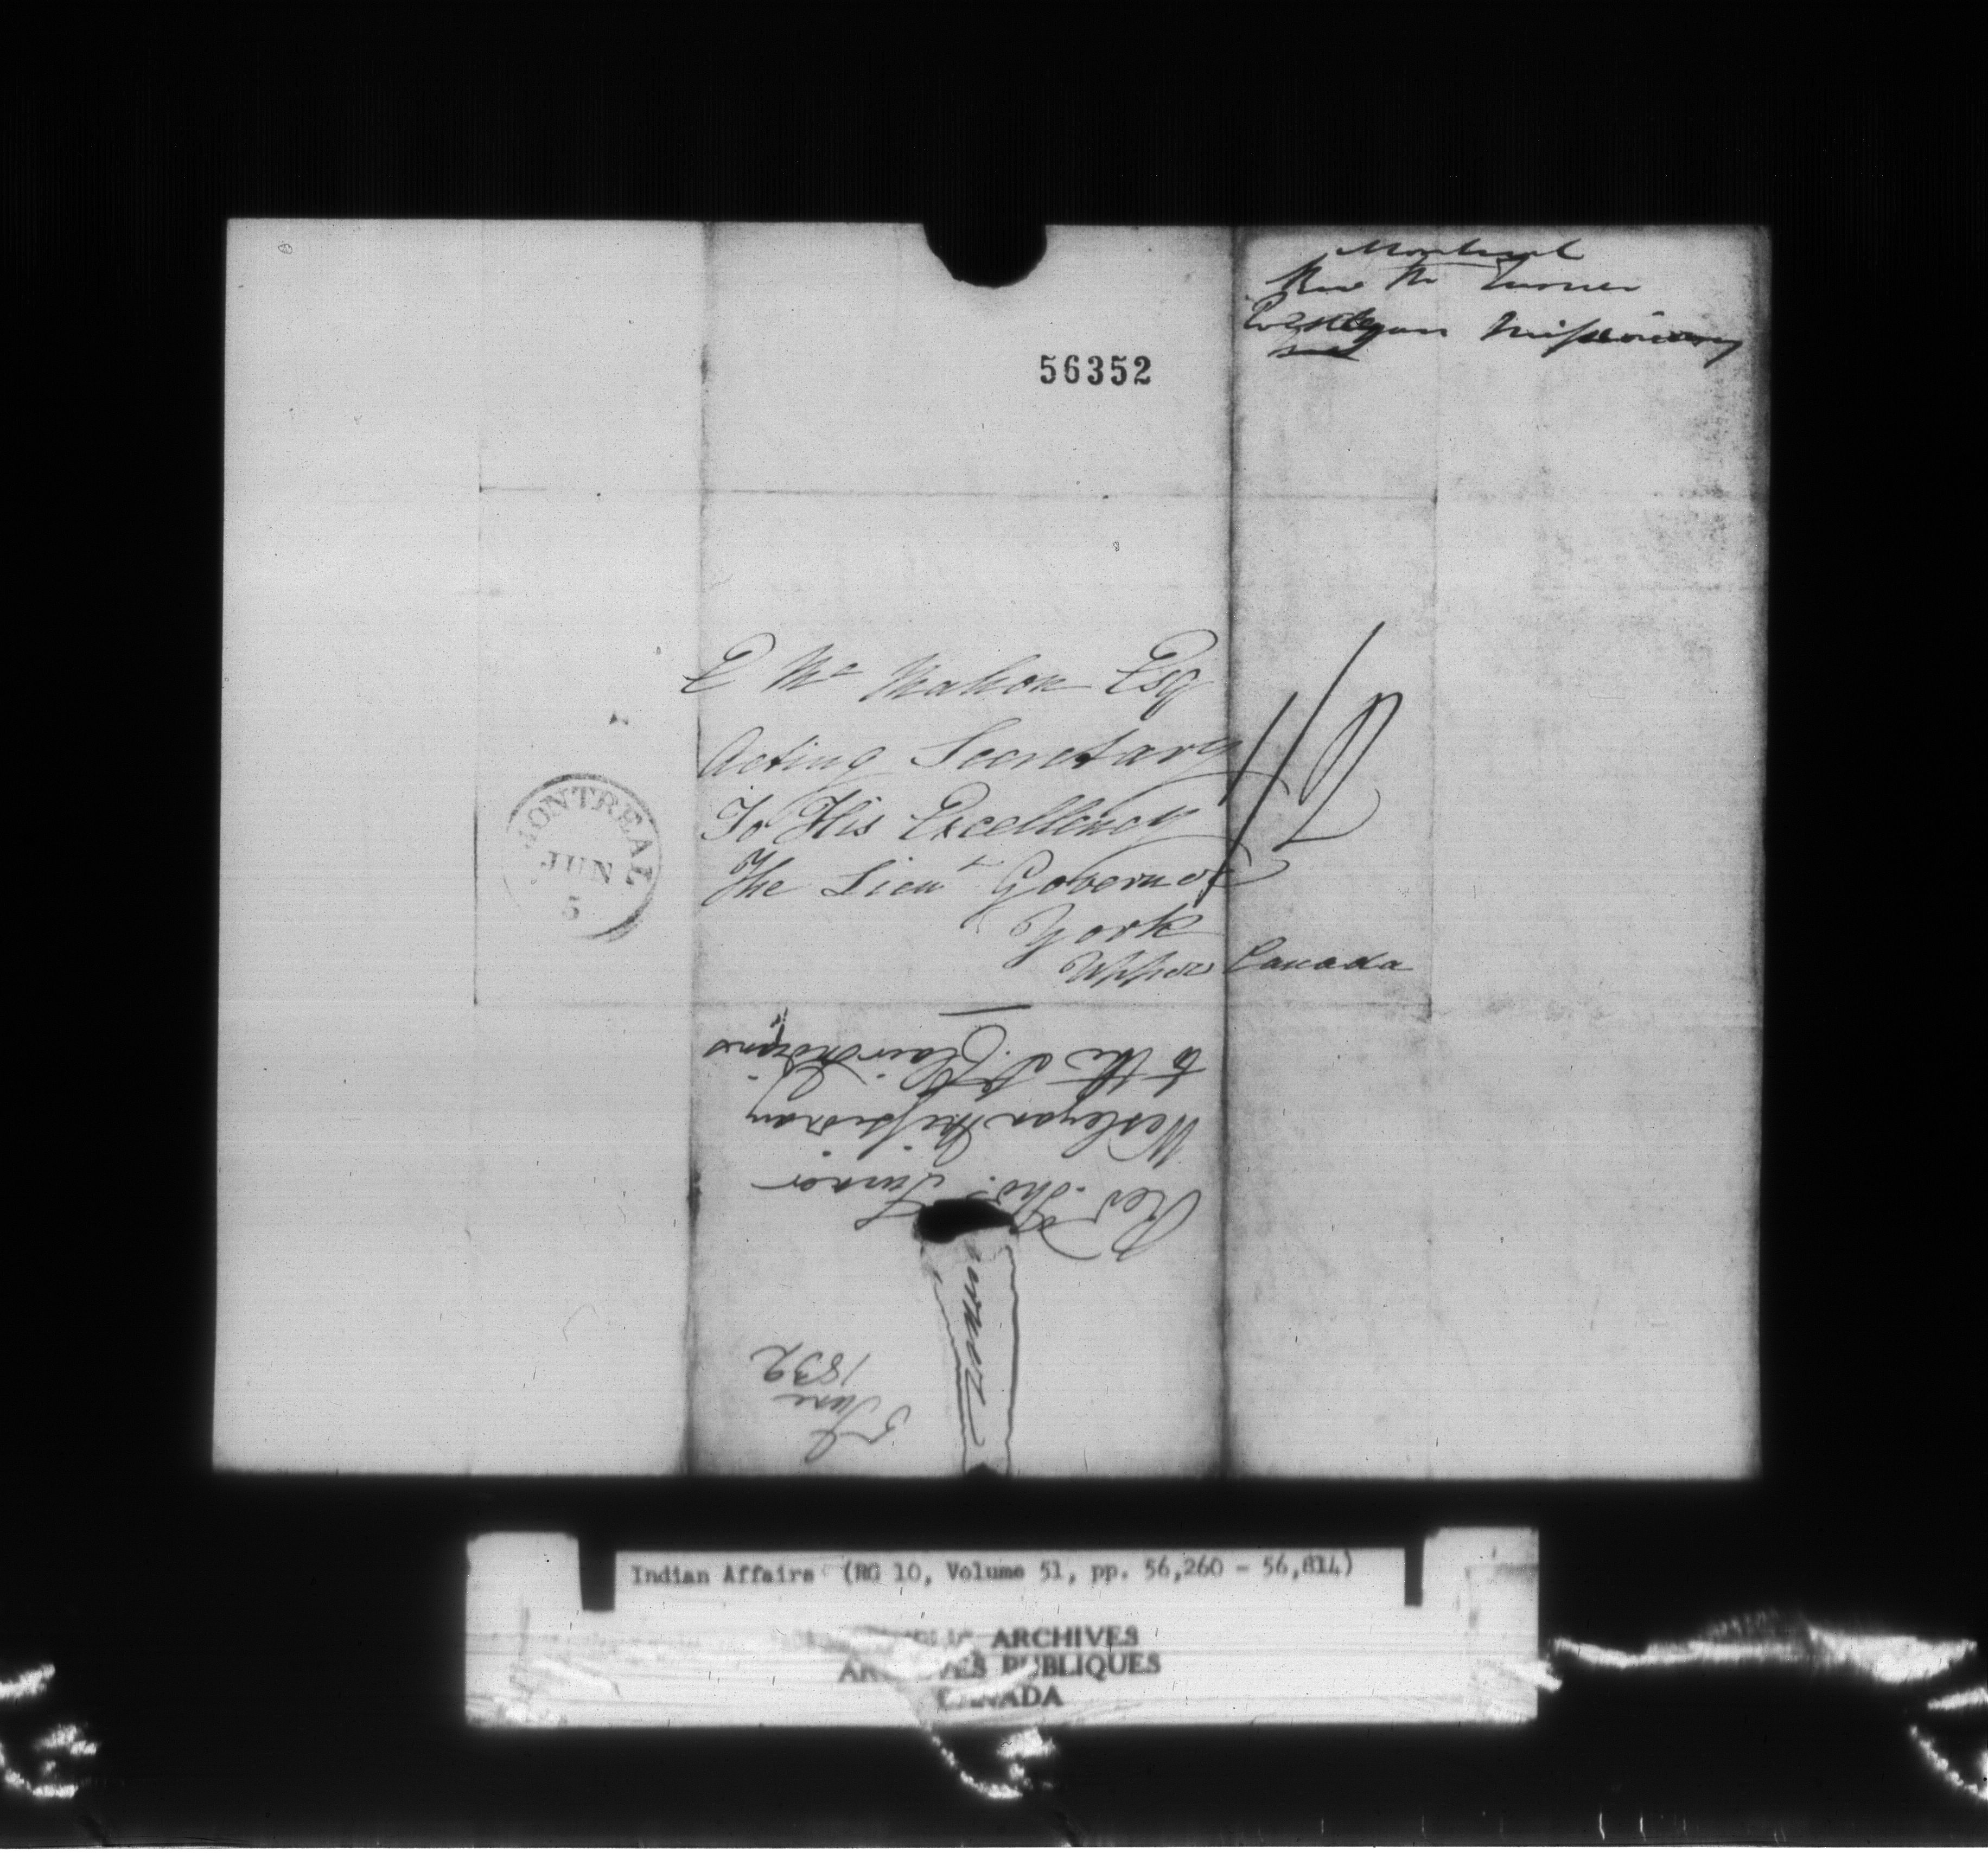 Montreal
Rev Mr Turner
Wesleyan Missionary
56352
E Mc Mahon Esq
Acting Secretary
To His Excellency
The Lieut Governor
York
Upper Canada
1/2
MONTREAL
JUN
5
5 June
1832
Revd. Thos. Turner
Wesleyan Missionary
to the St. Clair Indians
Indian Affairs (RG 10, Volume 51, pp. 56,260 - 56,814)
PUBLIC ARCHIVES
ARCHIVES PUBLIQUES
CANADA